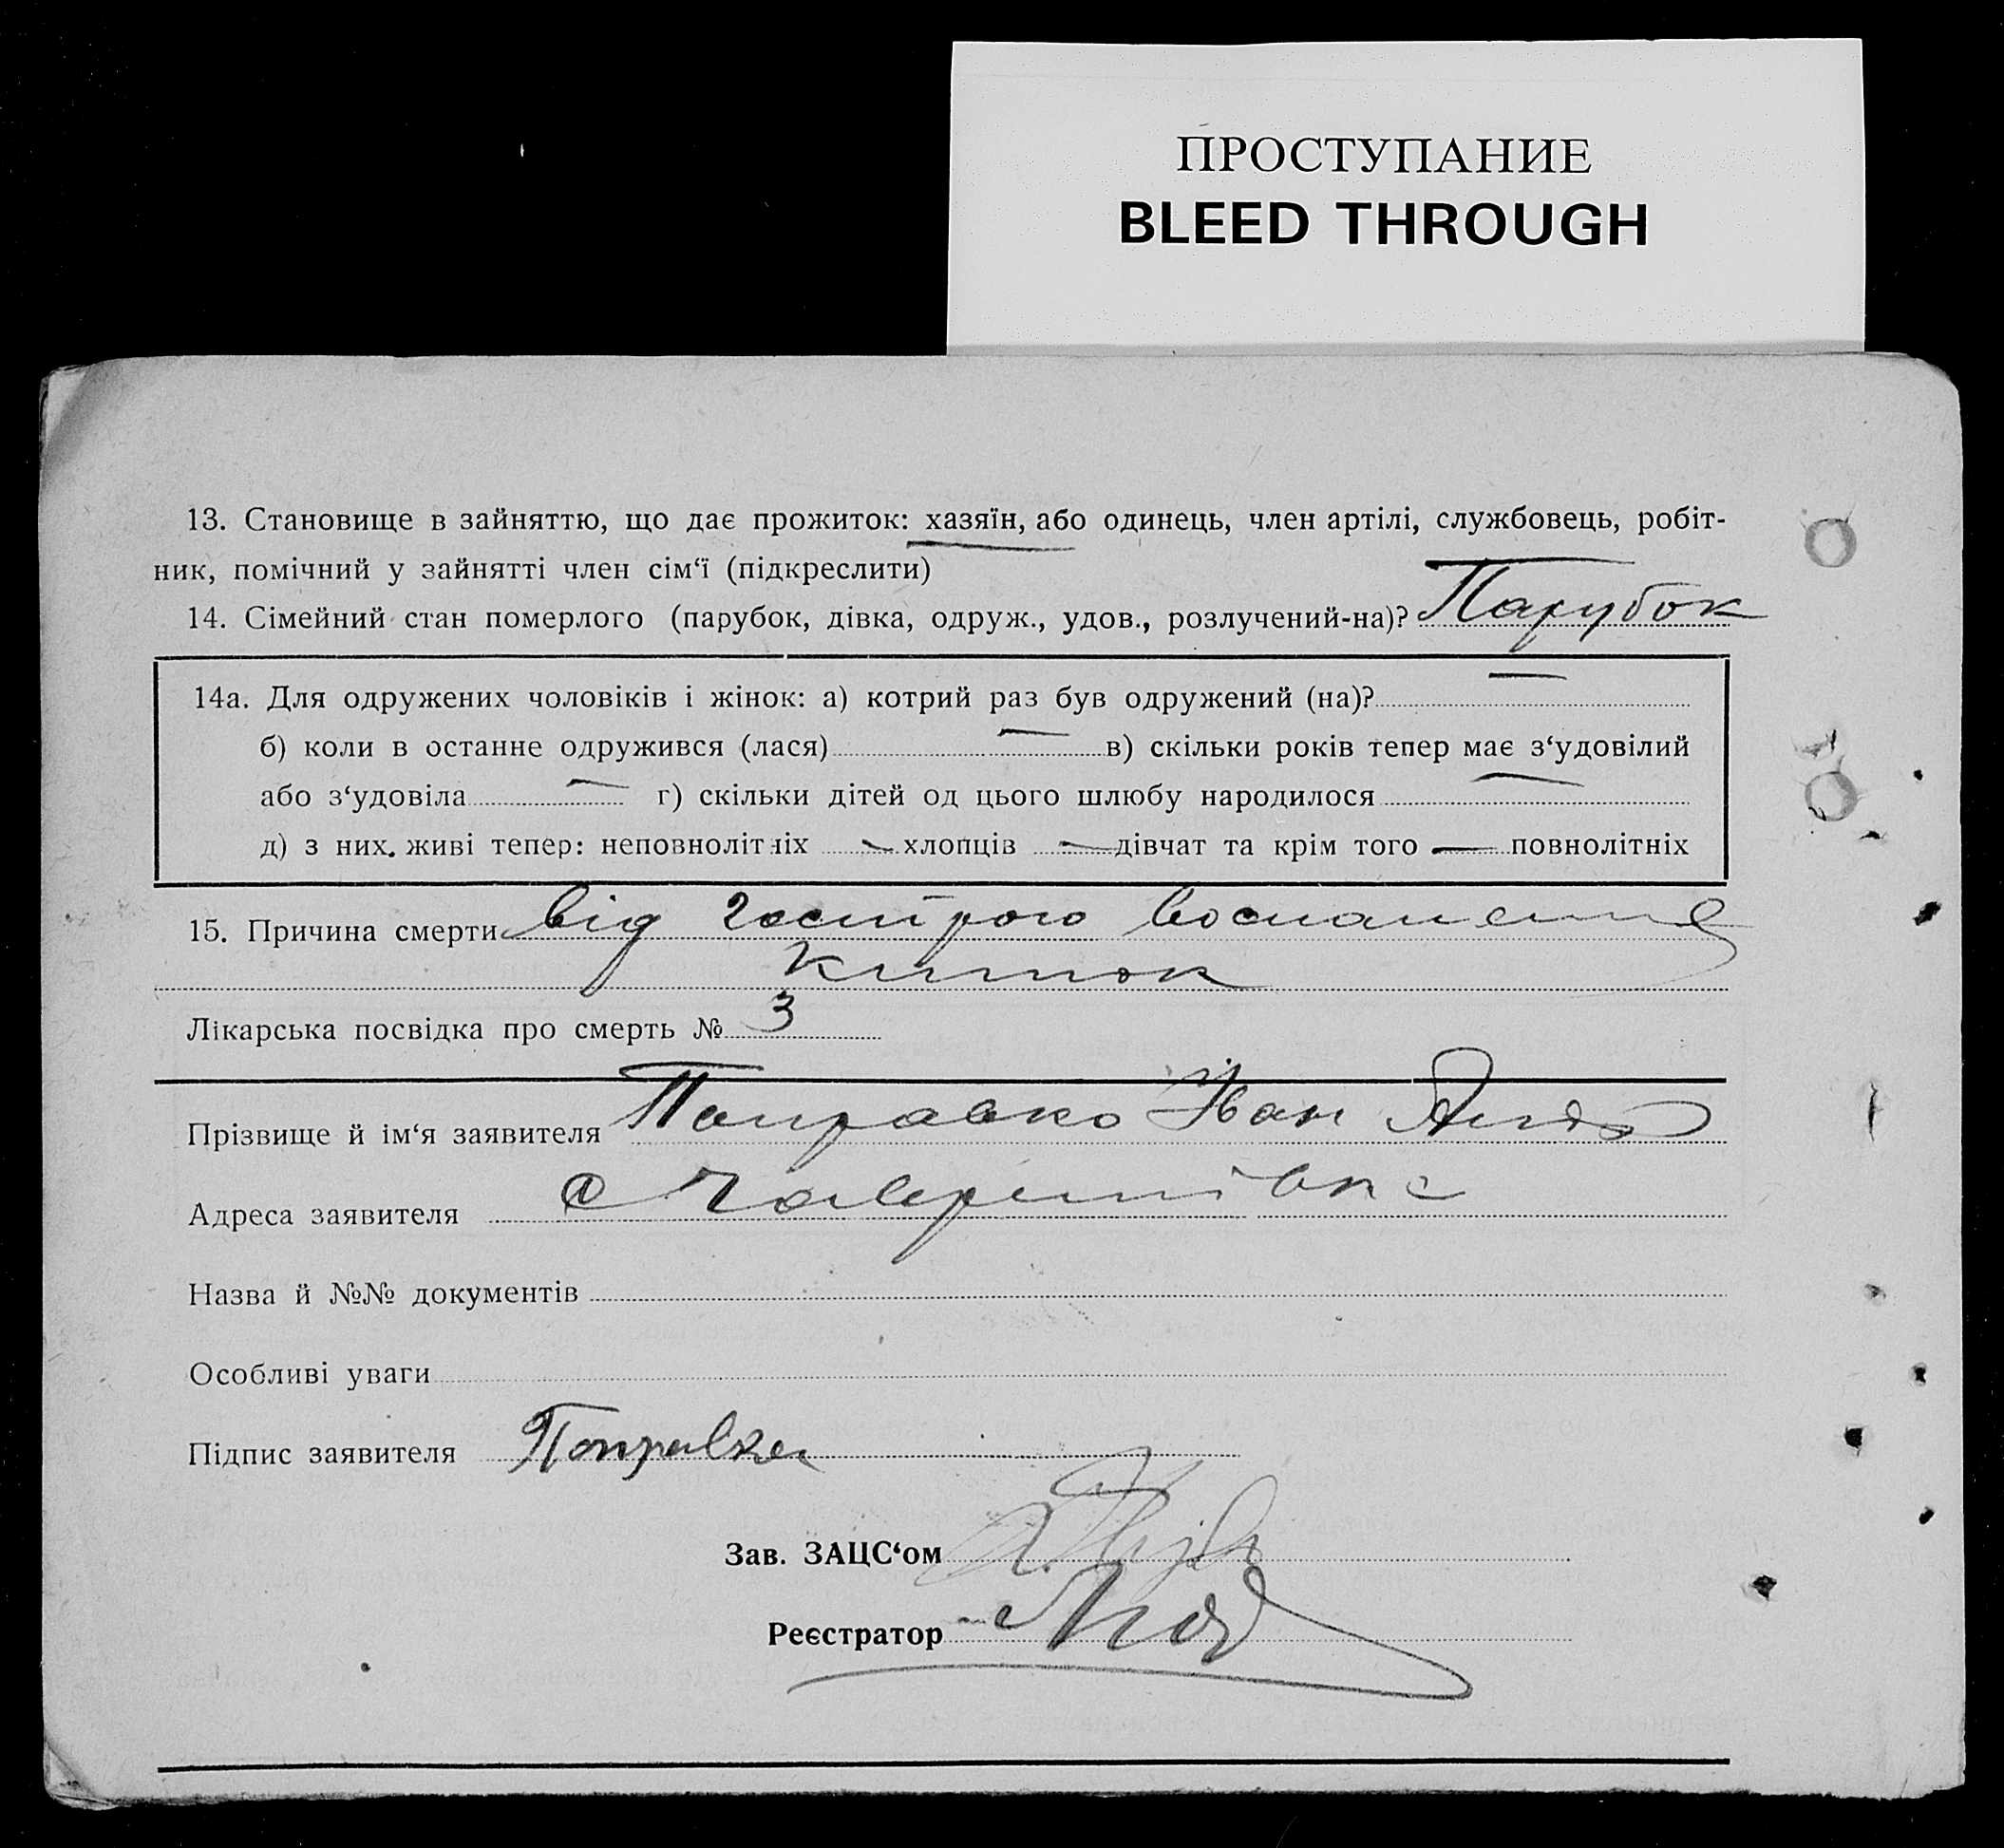 ПРОСТУПАНИЕ
BLEED THROUGH
13. Становище в зайняттю, що дає прожиток: хазяїн, або одинець, член артілі, службовець, робіт-
ник, помічний у зайнятті член сім‘ї (підкреслити)
14. Сімейний стан померлого (парубок, дівка, одруж., удов., розлучений-на)? Парубок
14а. Для одружених чоловіків і жінок: а) котрий раз був одружений (на)? —
б) коли в останне одружився (лася) — в) скільки років тепер має з‘удовілий
або з‘удовіла — г) скільки дітей од цього шлюбу народилося —
д) з них. живі тепер: неповнолітніх — хлопців — дівчат та крім того — повнолітніх
15. Причина смерти від гострого воспаления
кишок
Лікарська посвідка про смерть № 3
Прізвище й ім‘я заявителя Поправко Іван
Адреса заявителя с
Назва й №№ документів
Особливі уваги
Підпис заявителя Поправка
Зав. ЗАЦС‘ом
Реєстратор